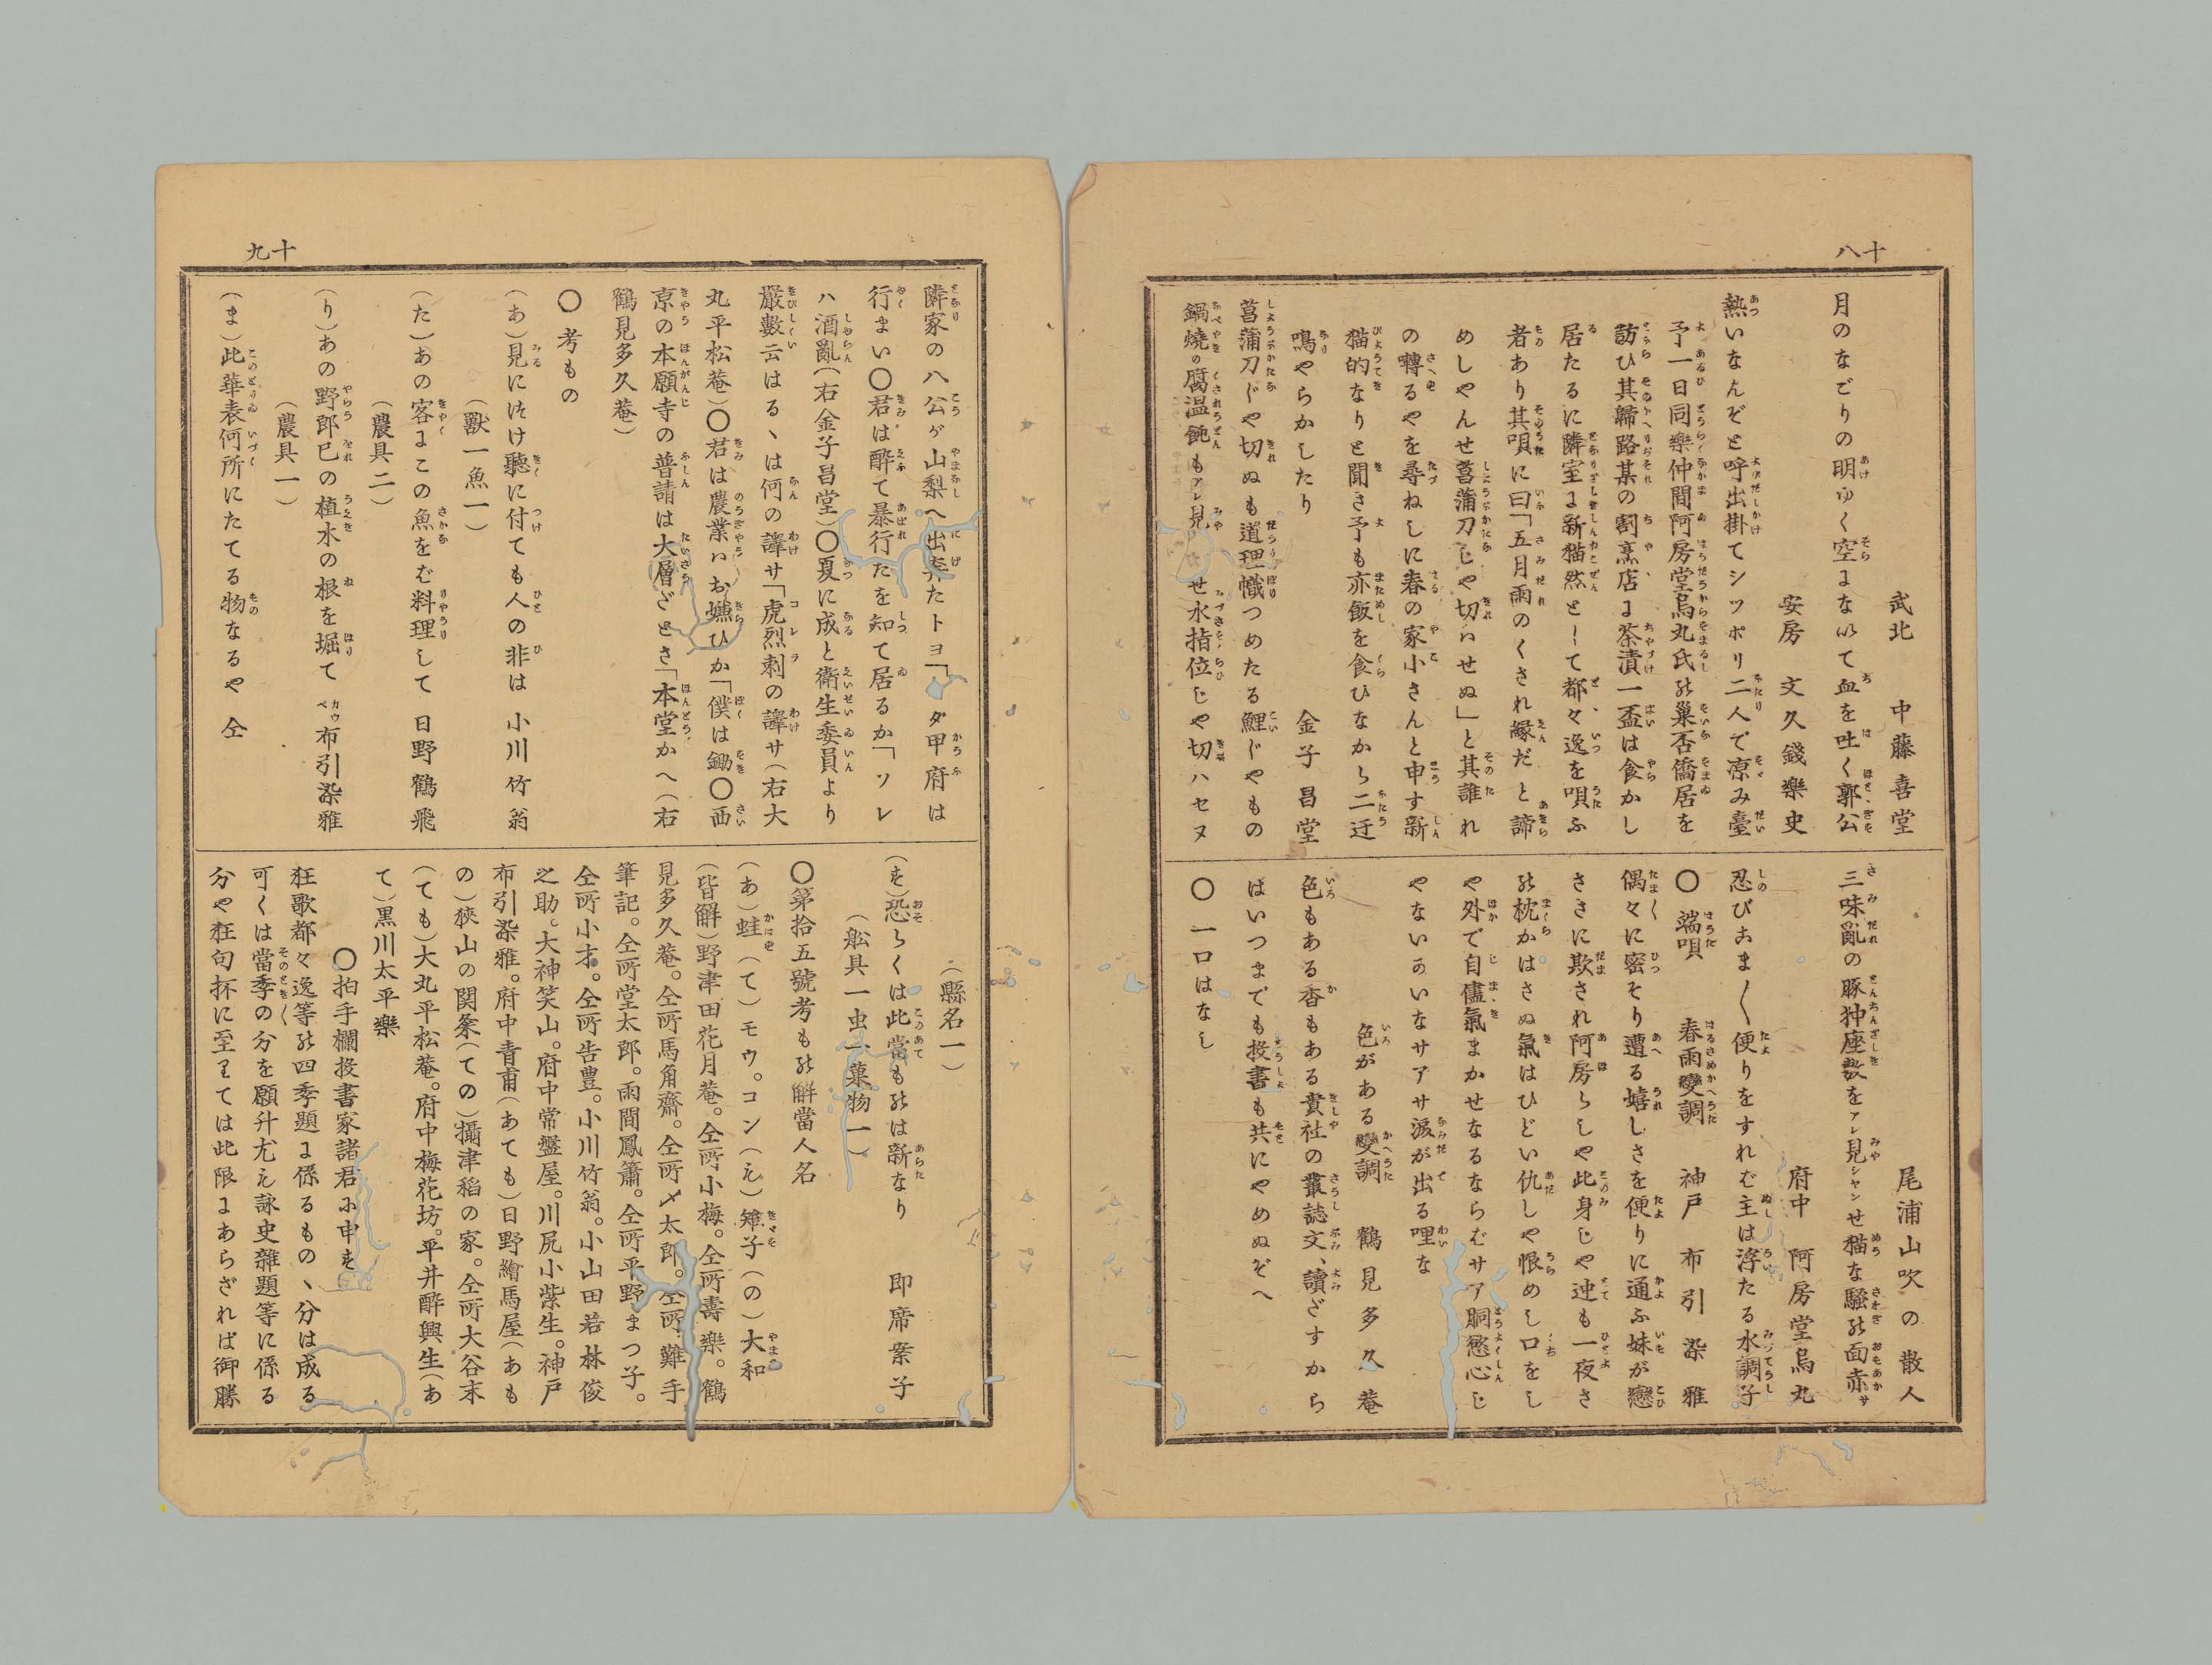 十八
武北　中藤喜堂
月のなごりの明ゆく空まないて血を吐く郭公
安房　文久錢樂史
熱いなんぞと呼出掛てシツポリ二人で凉み臺
予一日同樂仲間阿房堂烏丸氏の巢否僑居を
訪ひ其歸路某の割烹店ま茶漬一盃は食かし
居たるに隣室ま新猫然として都々逸を唄ふ
者あり其唄に曰「五月雨のくされ縁だと諦
めしやんせ菖蒲刀じや切れせぬ」と其誰れ
の囀るやを尋ねしに春の家小さんと申す新
猫的なりと聞き予も亦飯を食ひなから二迂
鳴やらかしたり　金子昌堂
菖蒲刀ぢや切ぬも道理幟つめたる鯉ぢやもの
鍋燒の腐温飩もアレ見 せ水指位じや切ハセヌ
尾浦山吹の散人
三味亂の豚狆座敷をアレ見シヤンせ猫な騷の面赤サ
府中　阿房堂烏丸
忍びあまり便りをすれば主は浮たる水調子
〇端唄　春雨變調　神戸　布引染雅
偶々に密そり遭る嬉しさを便りに通ふ妹が戀
ささに欺され阿房らしや此身じや迚も一夜さ
の枕かはさぬ氣はひどい仇しや恨めし口をし
や外で自儘氣まかせなるならばサア胴慾心じ
やないかいなサアサ涙が出る哩な
色がある變調　鶴見多久菴
色もある香もある貴社の叢誌文、讀ざすから
はいつまでも投書も共にやめぬぞへ
〇一口はなし
十九
隣家の八公ゲ山梨へ出奔たトヨ「 ダ甲府は
行まい〇君は醉て暴行たを知て居るか「ソレ
ハ酒亂（右金子昌堂）〇夏に成と衛生委員より
嚴數云はるゝは何の譯サ「虎烈刺の譯サ（右大
丸平松菴）〇君は農業いお嫌ひか「僕は鋤〇西
京の本願寺の普請は大層ざとさ「本堂かへ（右
鶴見多久菴）
〇考もの
（あ）見にけけ聽に付ても人の非は　小川竹翁
（獸一魚一）
（た）あの客まこの魚をば料理して　日野鶴飛
（農具二）
（り）あの野郎已の植木の根を堀て　布引染雅
（農具一）
（ま）此華表何所にたてる物なるや　仝
（縣名一）
（を）恐らくは此當ものは新なり　即席案子
（舩具一虫一菓物一）
〇第拾五號考もの解當人名
（あ）蛙（て）モウ。コン（え）雉子（の）大和
（皆解）野津田花月菴。仝所小梅。仝所壽樂。鶴
見多久菴。仝所馬角齋。仝所〆太郎。仝所難手
筆記。仝所堂太郎。雨間鳳簫。仝所平野まつ子。
仝所小才。仝所告豊。小川竹翁。小山田若林俊
之助。大神笑山。府中常盤屋。川尻小紫生。神戸
布引染雅。府中青甫（あても）日野繪馬屋（あも
の）狹山の関粂（ての）攝津稻の家。仝所大谷末
（ても）大丸平松菴。府中梅花坊。平井醉興生（あ
て）黒川太平樂
〇拍手欄投書家諸君に申を
狂歌都々逸等の四季題ま係るものゝ分は成る
可くは當季の分を願升尤え詠史雜題等に係る
分や狂句抔に至りては此限まあらざれば御勝